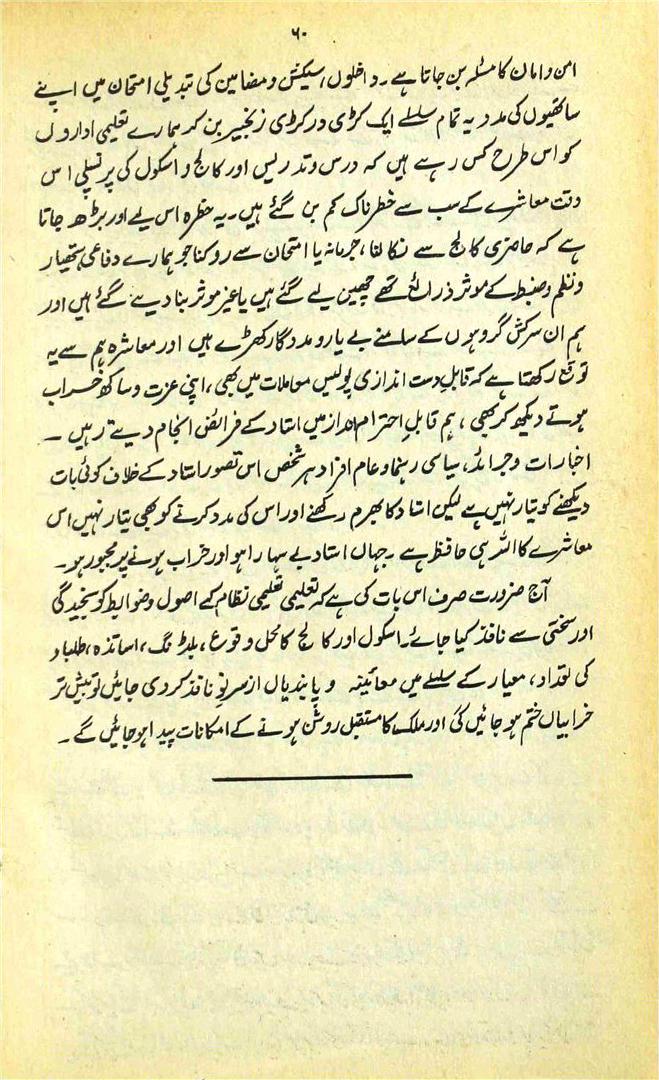 ۶۰
امن و امان کا مسئلہ بن جاتا ہے۔ داخلوں، سیکشن و مضامین کی تبدیلی امتحان میں اپنے
ساتھیوں کی مدد یہ تمام سلسلے ایک کڑی در کڑی زنجیر بن کر ہمارے تعلیمی اداروں
کو اس طرح کس رہے ہیں کہ درس و تدریس اور کالج و اسکول کی پرنسپلی اس
وقت معاشرے کے سب سے خطرناک کم بن گئے ہیں۔ یہ خطرہ اس لیے اور بڑھ جاتا
ہے کہ حاضری کالج سے نکالنا، جرمانہ یا امتحان سے روکنا جو ہمارے دفاعی ہتھیار
و نظم و ضبط کے موثر ذرائع تھے چھین لیے گئے ہیں یا غیر موثر بنا دیے گئے ہیں اور
ہم ان سرکش گروہوں کے سامنے بے یار و مددگار کھڑے ہیں اور معاشرہ ہم سے یہ
توقع رکھتا ہے کہ قابلِ دست اندازی پولیس معاملات میں بھی، اپنی عزت و ساکھ خراب
ہوتے دیکھ کر بھی، ہم قابلِ احترام انداز میں استاد کے فرائض انجام دیتے رہیں ۔
اخبارات و جرائد، سیاسی رہنما و عام افراد ہر شخص اس تصور استاد کے خلاف کوئی بات
دیکھنے کو تیار نہیں ہے لیکن استاد کا بھرم رکھنے اور اس کی مدد کرنے کو بھی تیار نہیں اس
معاشرے کا اللہ ہی حافظ ہے۔ جہاں استاد بے سہارا ہو اور خراب ہونے پر مجبور ہو۔
آج ضرورت صرف اس بات کی ہے کہ تعلیمی تعلیمی نظام کے اصول و ضوابط کو سنجیدگی
اور سختی سے نافذ کیا جائے۔ اسکول اور کالج کا محل و قوع، بلڈنگ، اساتذہ، طلباء
کی تعداد، معیار کے سلسلے میں معائینہ و پابندیاں از سر نو نافذ کر دی جائیں تو بیش تر
خرابیاں ختم ہو جائیں گی اور ملک کا مستقبل روشن ہونے کے امکانات پیدا ہو جائیں گے ۔